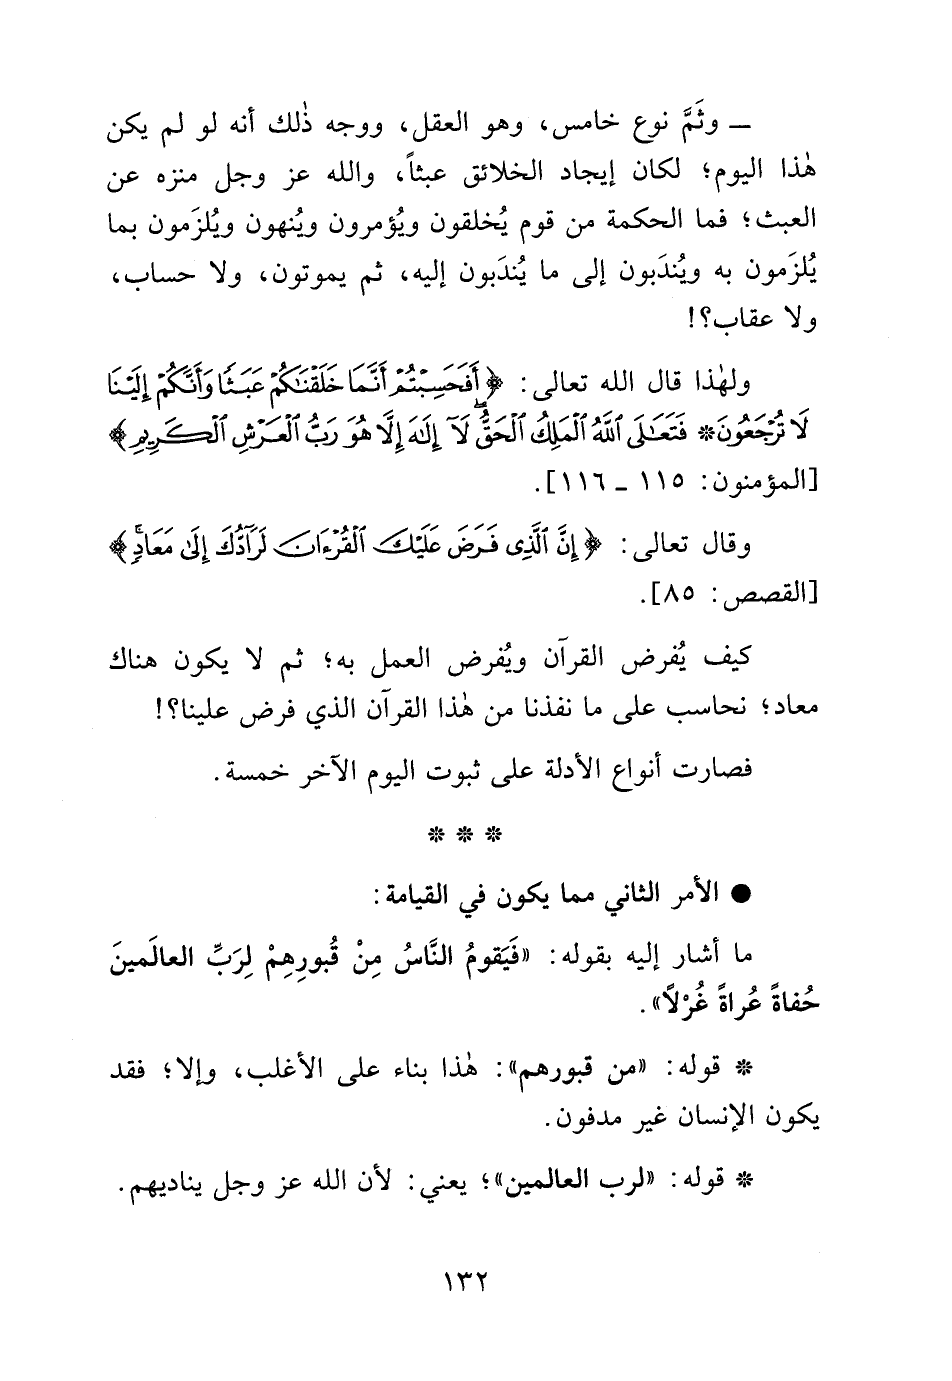 ـ وثَمَّ نوع خامس، وهو العقل، ووجه ذٰلك أنه لو لم يكن
هٰذا اليوم؛ لكان إيجاد الخلائق عبثاً، والله عز وجل منزه عن
العبث؛ فما الحكمة من قوم يُخلقون ويُؤمرون ويُنهون ويُلزَمون بما
يُلزَمون به ويُندَبون إلى ما يُندَبون إليه، ثم يموتون، ولا حساب،
ولا عقاب؟!
ولهٰذا قال الله تعالى: ﴿أَفَحَسِبْتُمْ أَنَّمَا خَلَقْنَٰكُمْ عَبَثًا وَأَنَّكُمْ إِلَيْنَا
لَا تُرْجَعُونَ* فَتَعَٰلَى ٱللَّهُ ٱلْمَلِكُ ٱلْحَقُّ ۖ لَآ إِلَٰهَ إِلَّا هُوَ رَبُّ ٱلْعَرْشِ ٱلْكَرِيمِ﴾
[المؤمنون: ١١٥ ـ ١١٦].
وقال تعالى: ﴿إِنَّ ٱلَّذِى فَرَضَ عَلَيْكَ ٱلْقُرْءَانَ لَرَآدُّكَ إِلَىٰ مَعَادٍ ۚ﴾
[القصص: ٨٥].
كيف يُفرض القرآن ويُفرض العمل به؛ ثم لا يكون هناك
معاد؛ نحاسب على ما نفذنا من هٰذا القرآن الذي فرض علينا؟!
فصارت أنواع الأدلة على ثبوت اليوم الآخر خمسة.
* * *
● الأمر الثاني مما يكون في القيامة:
ما أشار إليه بقوله: «فَيَقومُ النَّاسُ مِنْ قُبورِهِمْ لِرَبِّ العالَمينَ
حُفاةً عُراةً غُرْلاً».
* قوله: «من قبورهم»: هٰذا بناء على الأغلب، وإلا؛ فقد
يكون الإنسان غير مدفون.
* قوله: «لرب العالمين»؛ يعني: لأن الله عز وجل يناديهم.
١٣٢